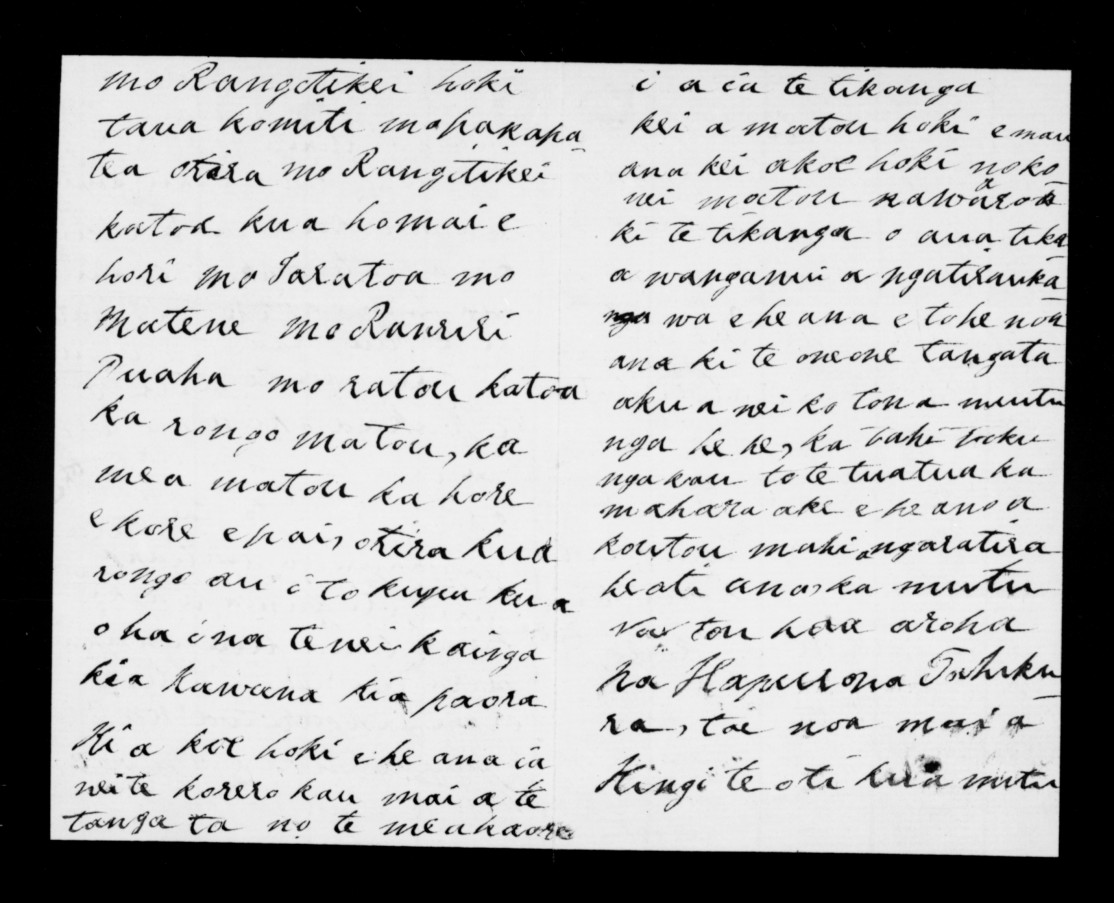 mo Rangitikei hoki
taua komiti mo pakapa
tea otira mo Rangitikei
katoa kua homai e
hori mo Taratoa mo
Matene mo Rauriri
Puaha mo ratou katoa
ka rongo matou, ka
mea matou ka hore
e kore e pai, otira kua
rongo au i to kupu kua
oha ina tenei kainga
kia Kawana kia paora
Ki a koe hoki ehe ana ia
nei te korero kau mai a te
tanga ta no te mea kaore
i a ia te tikanga
kei a matou hoki e mau
ana kei akoe hoki noko
nei matou
ki te tikanga o aua tika
a wanganui a ngatirauka
wa ehe ana e tohe noa
ana ki te oneone tangata
aku a nei ko tona mutu
nga he he, ka tahi toku
ngakau to te tuatua ka
mahara ake ehe ano a
koutou mahi ngaratira
heoti ano, ka mutu
na tou hoa aroha
na Hapurona Tohiku
ra, tae noa mai a
Kingi te oti kua mutu